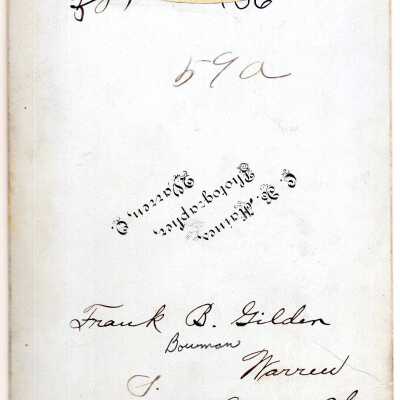 59a
C. R. Haines,
Photographer,
Warren, O.
Frank B. Gilder
Bowman
Warren
S.